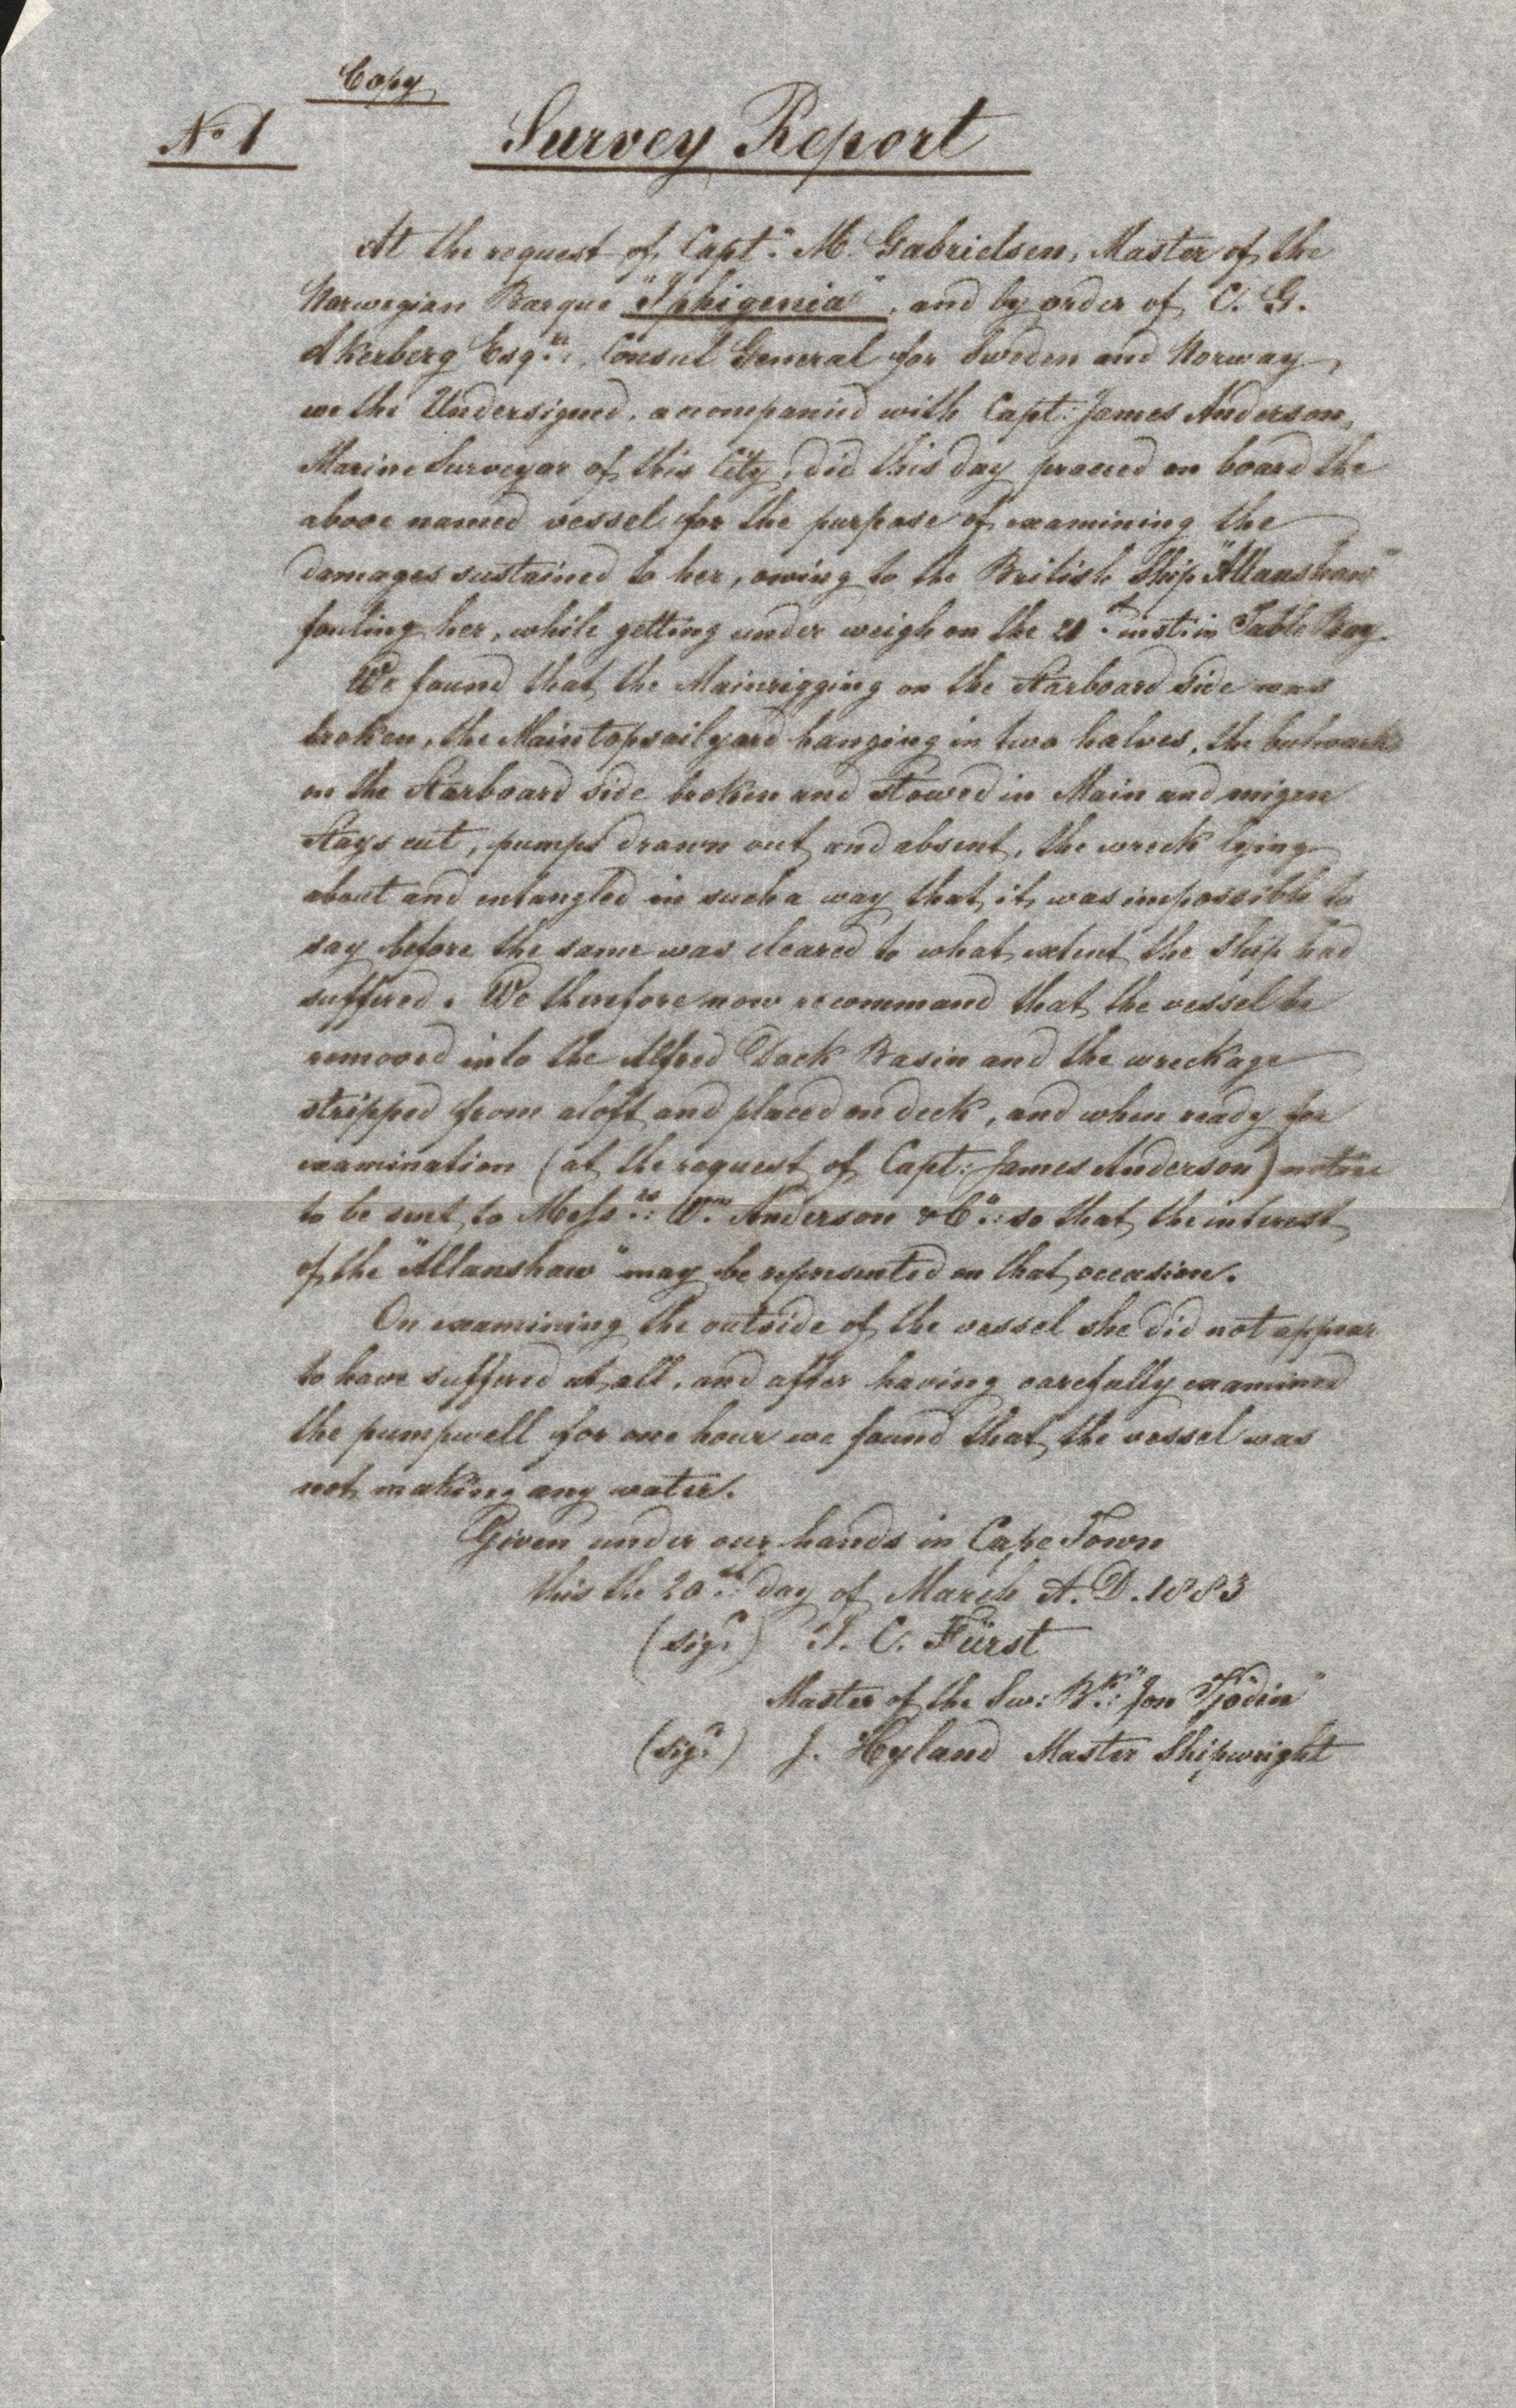 Copy
No 1 Survey Report
At the request of Captn. M. Gabrielsen, Master of the
Norwegian Barque "Iphigenia", and by order of C. G.
Akerberg Esqre:, Consul General for Sweden and Norway,
we the Undersigned, accompanied with Capt: James Anderson,
Marine Surveyor of this City, did this day proceed on board the
above named vessel for the purpose of examining the
damages sustained to her, owing to the British Ship "Allanshaw"
fouling her, while getting under weigh on the inst: in Table Bay.
We found that the Mainrigging on the Starboard side was
broken, the Maintopsailyard hanging in two halves, the bulwarks
on the Starboard side broken and stowed in Main and mizen
Stays cut, pumps drawn out and absent, the wreck lying
about and entangled in such a way that it was impossible to
say before the same was cleared to what extent the ship had
suffered. We therefore now recommand that the vessel be
removed into the Alfred Dock Basin and the wreckage
stripped from aloft and placed on deck, and when ready for
examination (at the request of Capt: James Anderson) notice
to be sent to Messrs: Wm. Anderson & Co: so that the interest
of the "Allanshaw" may be represented on that occasion.
On examining the outside of the vessel she did not appear
to have suffered at all, and after having carefully examined
the pumpwell for one hour we found that the vessel was
not making any water.
Given under our hands in Cape Town
this the 20th: day of March A. D. 1883
(sigd) C. Fürst
Master of the Sw: Bk: "Jon Tjödin"
(sigd) J. Hyland Master Shipwright